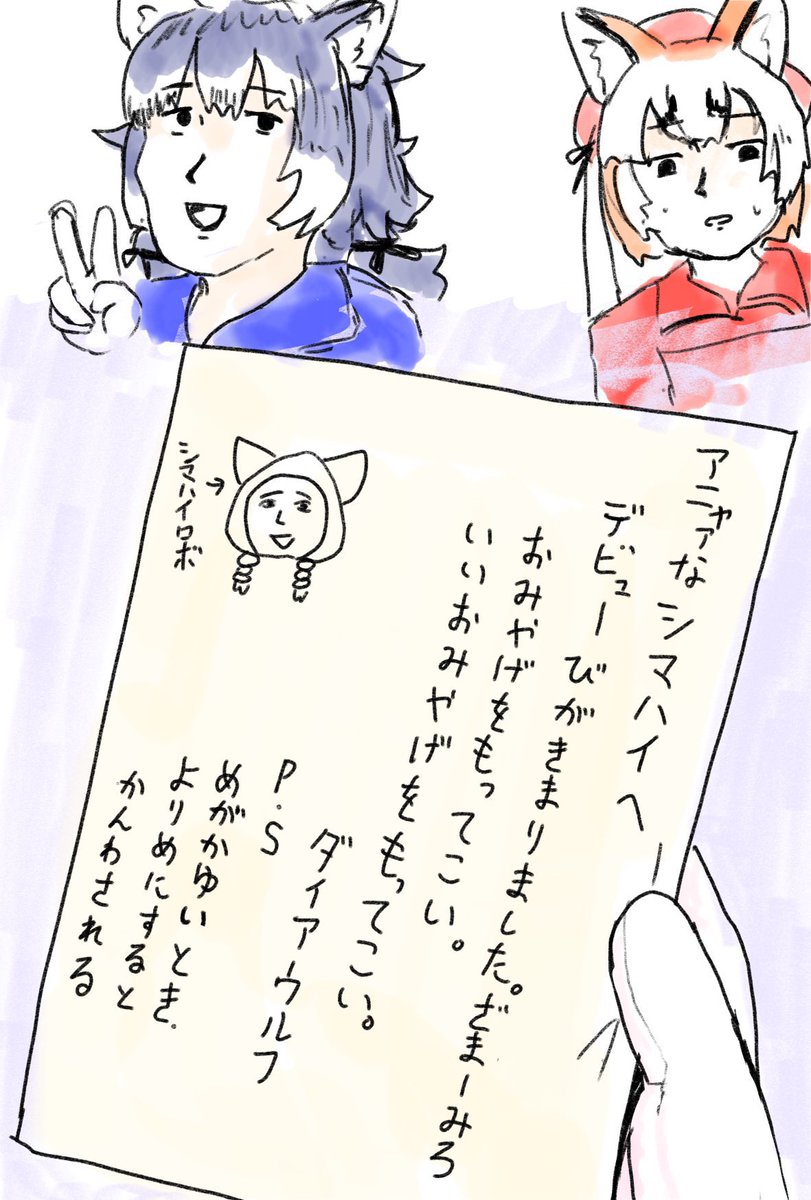 アニャァな シマハイへ
デビューびがきまりました。ざまーみろ
おみやげをもってこい。
いいおみやげをもってこい。
ダイアーウルフ
P.S
めがかゆいとき、
よりめにすると
かんわされる
シマハイロボ